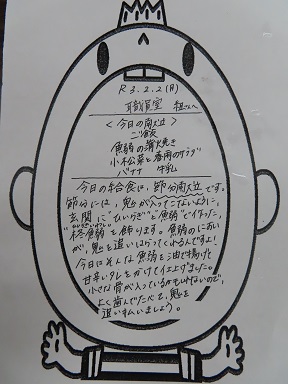 R3.2.2(火)
職員室 組さんへ
〈今日の献立〉
ご飯
魚鰯の蒲焼き
小松菜と春雨のサラダ
バナナ 牛乳
今日の給食は、節分献立です。
節分には、鬼が入ってこないように、
玄関に"ひいらぎ"と"魚鰯"で作った、
"柊魚鰯"を飾ります。魚鰯のにおい
が、鬼を追いはらってくれるんですよ!
今日はそんな魚鰯を油で揚げた
甘辛いタレをかけて仕上げました。
小さな骨が入っているかもしれないので、
よく歯んでたべて、鬼を
追い払いましょう。